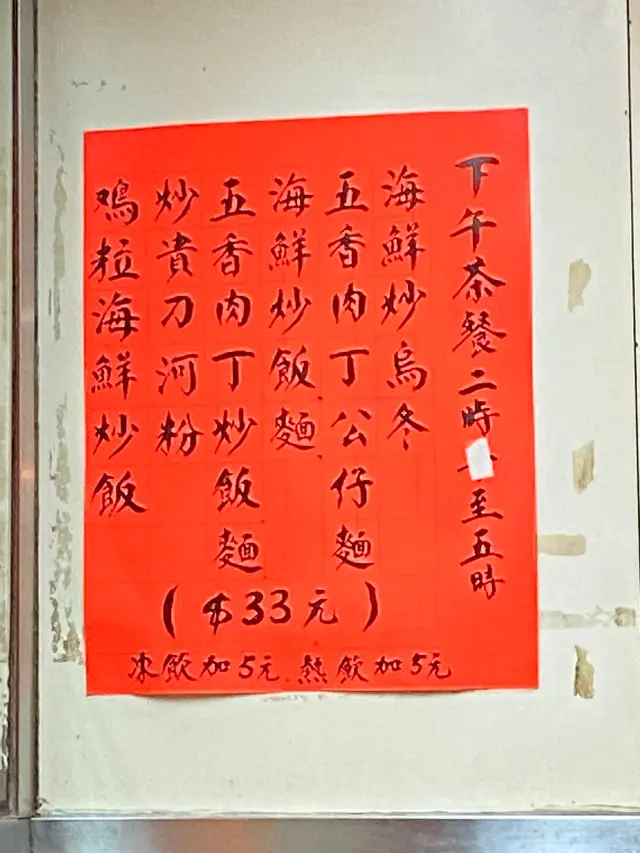 下午茶餐二時至五時
海鮮炒烏冬
五香肉丁公仔麵
海鮮炒飯麵
五香肉丁炒飯麵
炒貴刀河粉
鳮粒海鮮炒飯
($33元)
冰飲加5元.熱飲加5元